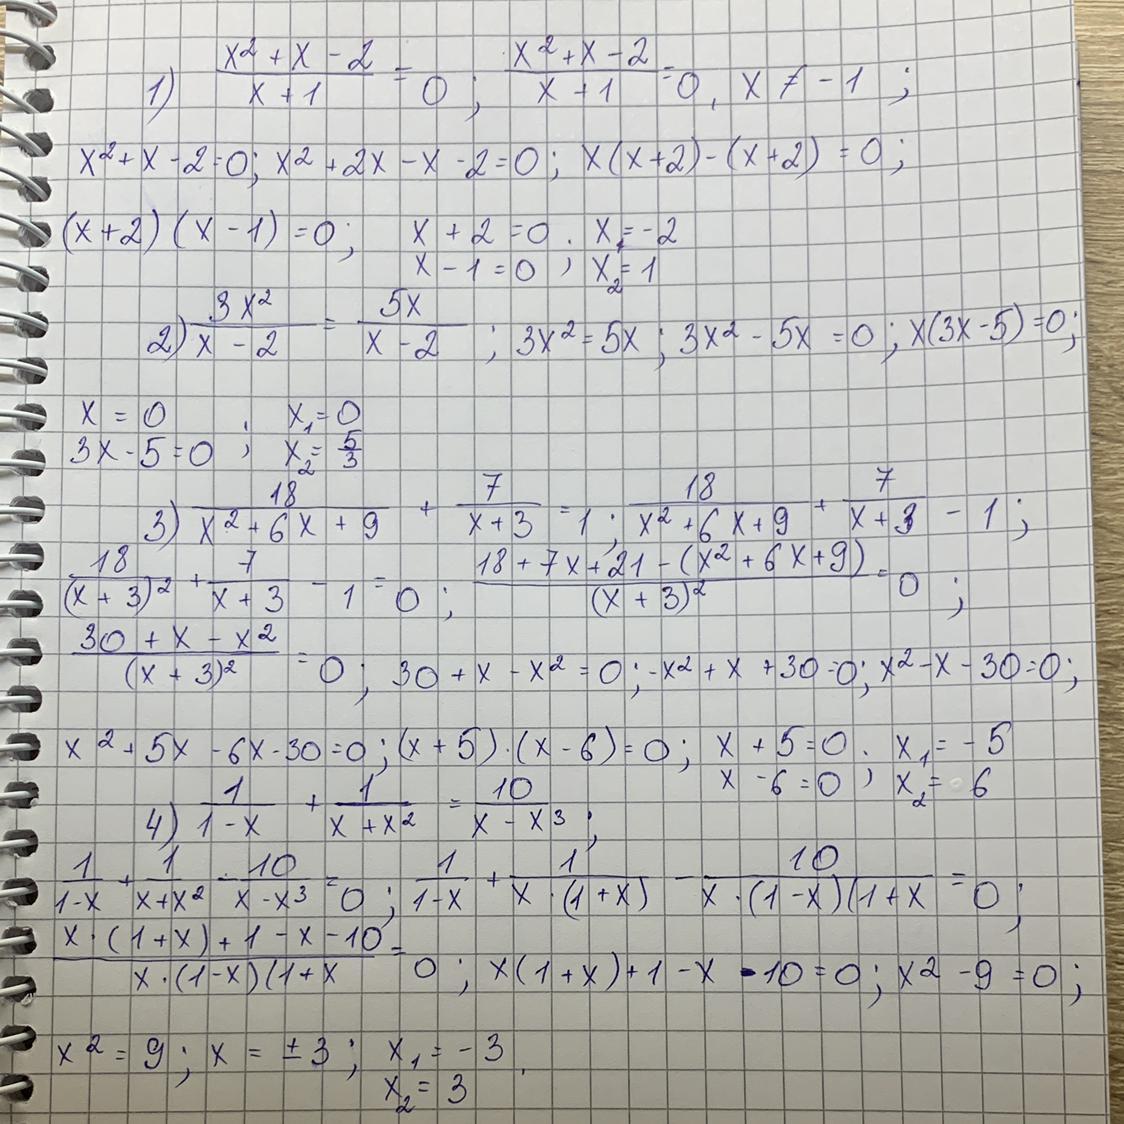 1) (x² + x - 2)/(x + 1) = 0 ; (x² + x - 2)/(x + 1) = 0, x ≠ -1 ;
x² + x - 2 = 0; x² + 2x - x - 2 = 0; x(x+2) - (x+2) = 0;
(x+2)(x-1) = 0; x + 2 = 0 . x₁ = -2
x - 1 = 0 , x₂ = 1
2) 3x²/(x - 2) = 5x/(x - 2) ; 3x² = 5x; 3x² - 5x = 0; x(3x-5) = 0;
x = 0 ; x₁ = 0
3x - 5 = 0 ; x₂ = 5/3
3) 18/(x² + 6x + 9) + 7/(x+3) = 1; 18/(x² + 6x + 9) + 7/(x+3) - 1;
18/(x+3)² + 7/(x+3) - 1 = 0; (18 + 7x + 21 - (x² + 6x + 9))/(x + 3)² = 0 ;
(30 + x - x²)/(x + 3)² = 0; 30 + x - x² = 0; -x² + x + 30 = 0; x² - x - 30 = 0;
x² + 5x - 6x - 30 = 0; (x+5)·(x-6) = 0; x + 5 = 0 . x₁ = -5
x - 6 = 0 , x₂ = 6
4) 1/(1-x) + 1/(x + x²) = 10/(x - x³) ;
1/(1-x) + 1/(x+x²) - 10/(x-x³) = 0; 1/(1-x) + 1/(x·(1+x)) - 10/(x·(1-x)(1+x = 0;
(x·(1+x) + 1 - x - 10)/(x·(1-x)(1+x = 0; x(1+x) + 1 - x - 10 = 0; x² - 9 = 0;
x² = 9; x = ±3; x₁ = -3
x₂ = 3 .